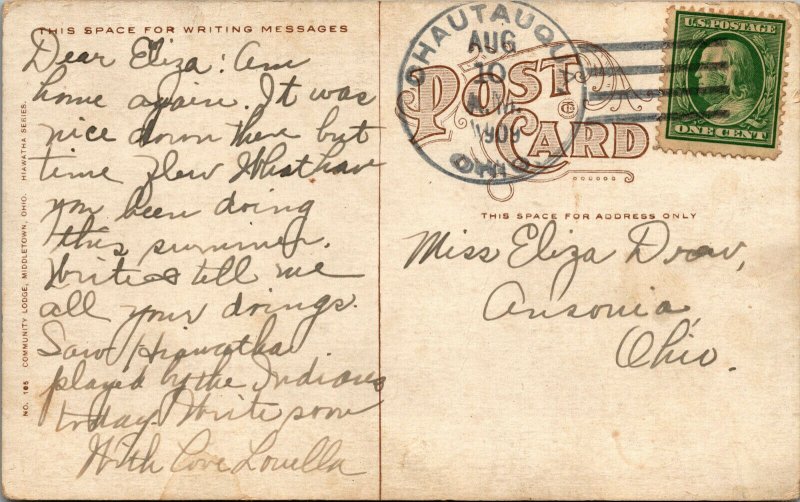 THIS SPACE FOR WRITING MESSAGES
Dear Eliza: Am
home again. It was
nice down there but
time flew What have
you been doing
this summer.
Write & tell me
all your doings.
Saw Hiawatha
played by the Indians
today. Write soon
With Love Louella
NO. 165 COMMUNITY LODGE, MIDDLETOWN, OHIO. HIAWATHA SERIES.
CHAUTAUQUA
AUG
10
1909
OHIO
POST CARD
U.S. POSTAGE
ONE CENT
THIS SPACE FOR ADDRESS ONLY
Miss Eliza Drew,
Ansonia,
Ohio.